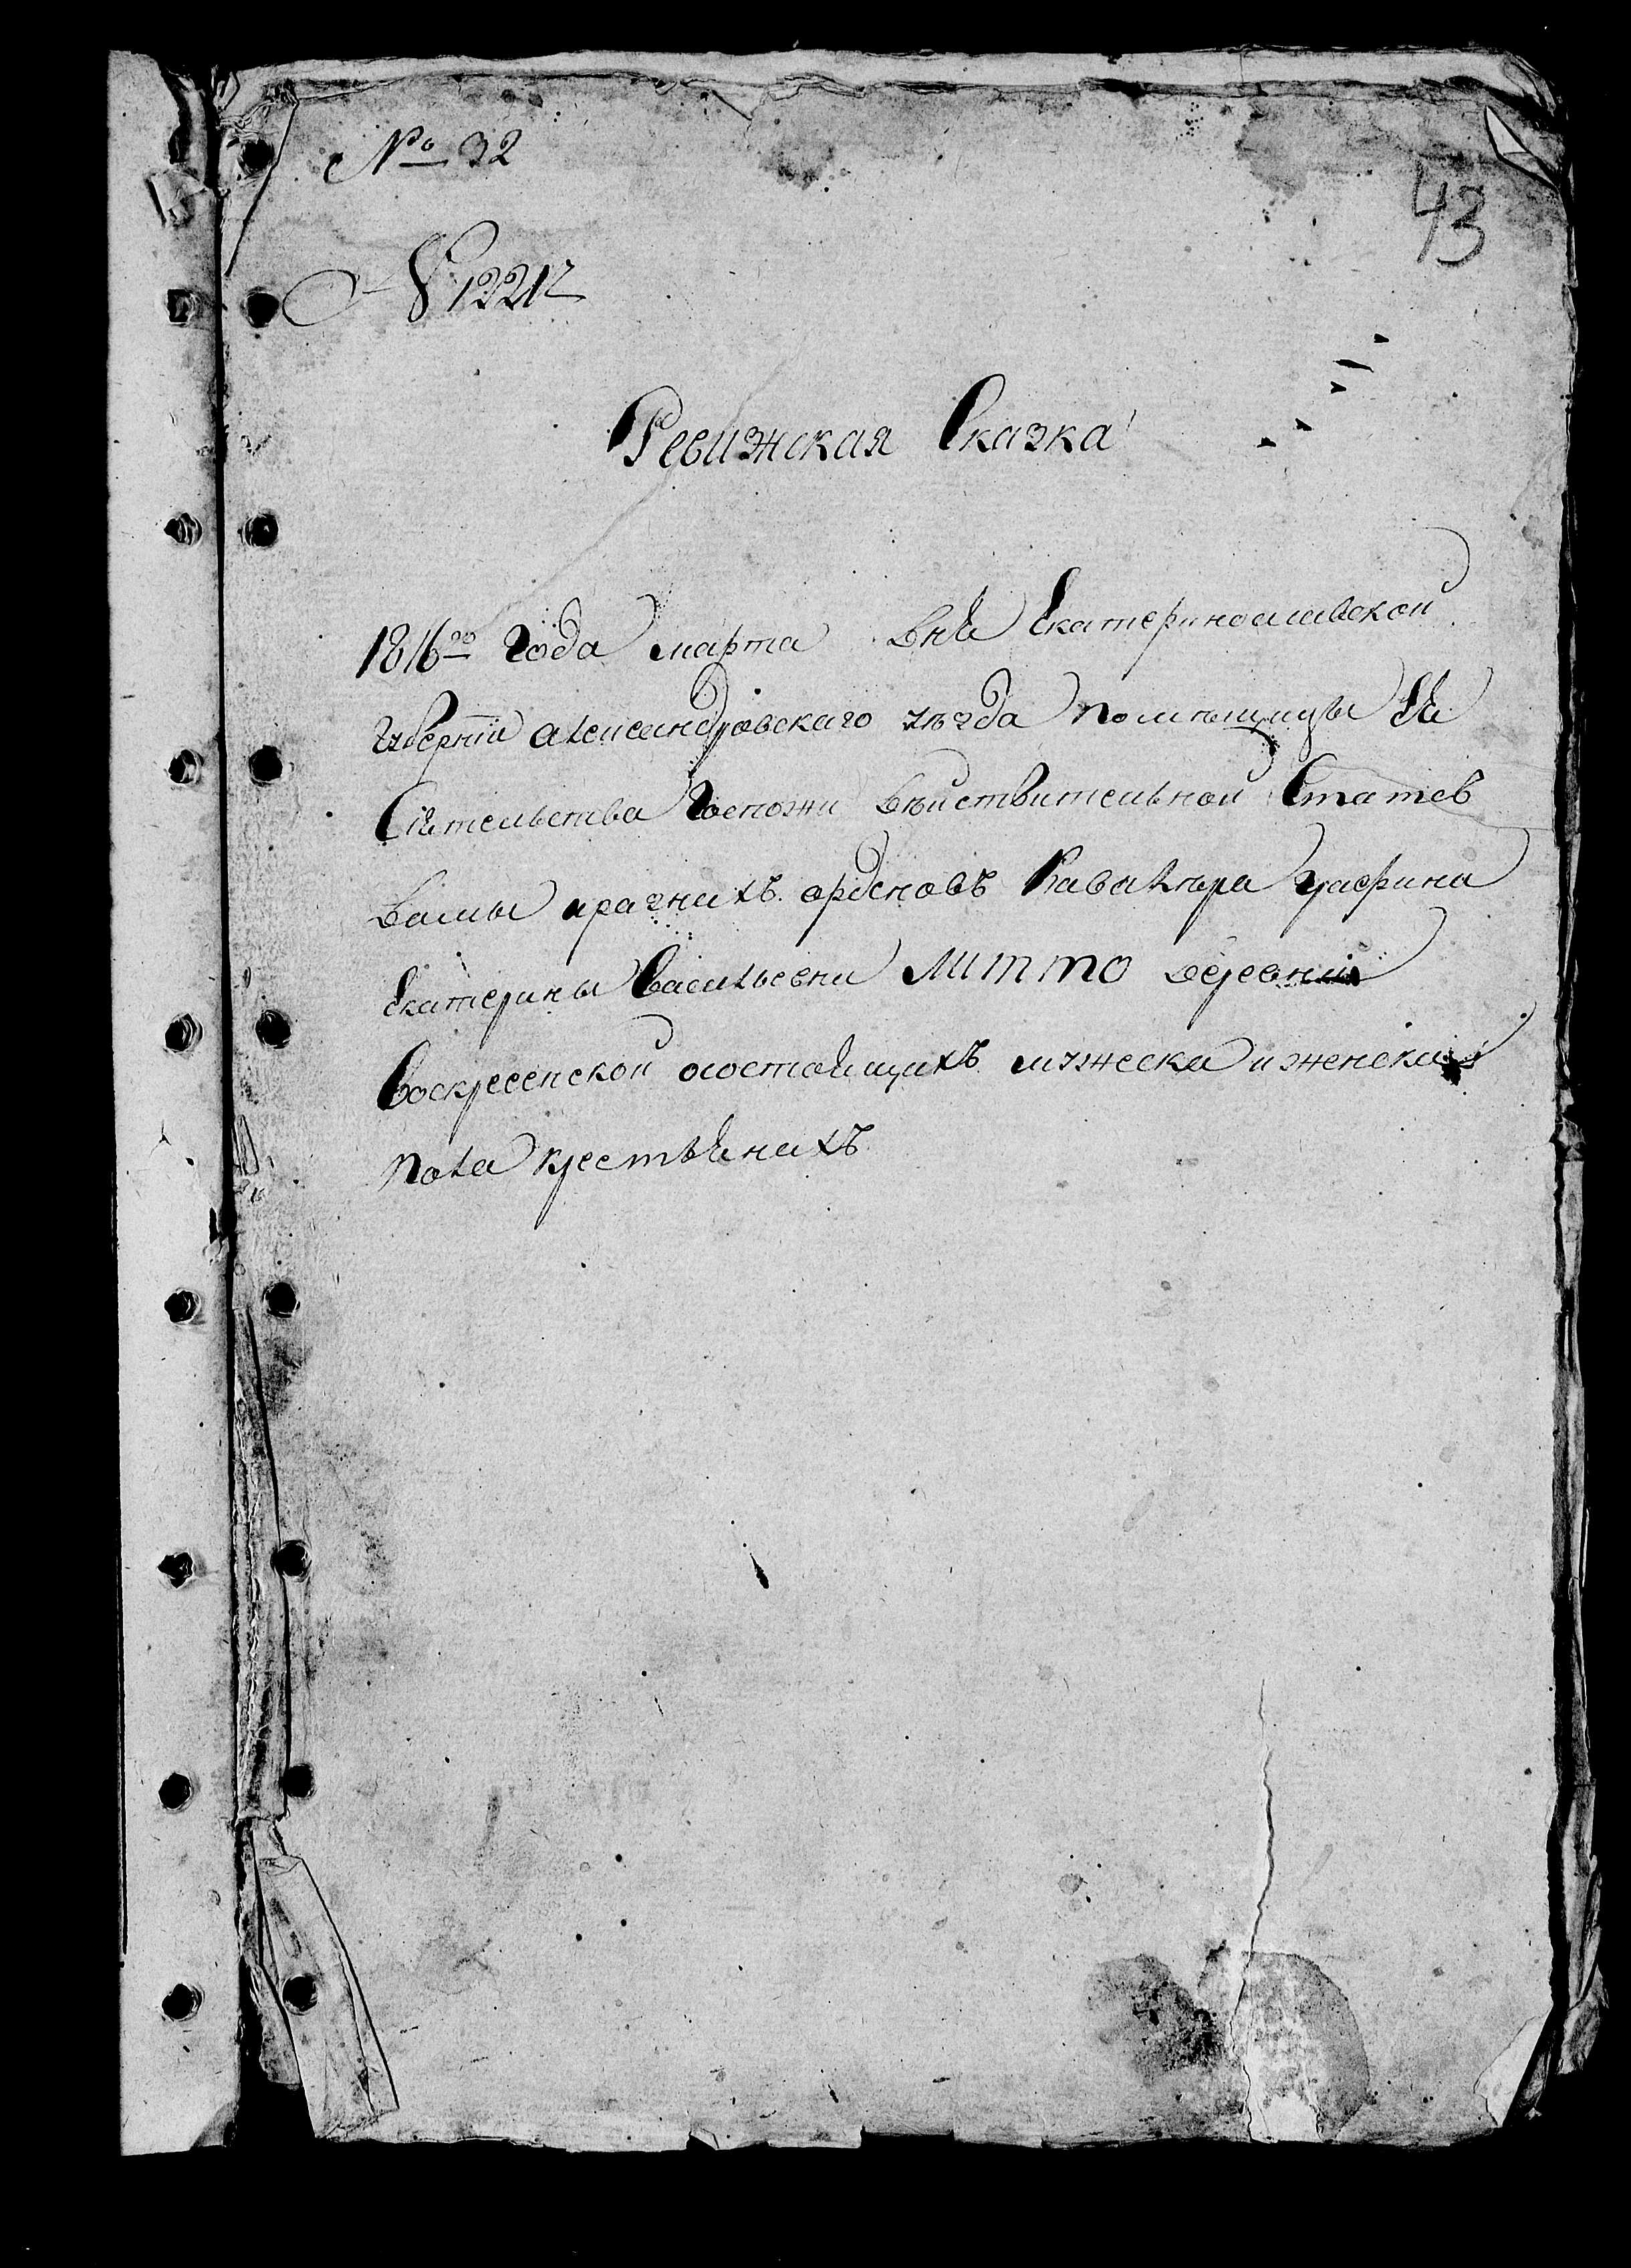 № 32
43
№ 1221
Ревижская Сказка
1816го Года марта дня Екатеринославской
Губерніи александровскаго уѣзда помѣщицы Ея
Сіятельства Госпожи Дѣйствительной Статсъ
Дамы иразныхъ орденовъ Кавалера Графини
Екатерины Васильевни Литто деревни
Воскресенской осостоящихъ мужеска иженска
пола крестьянахъ